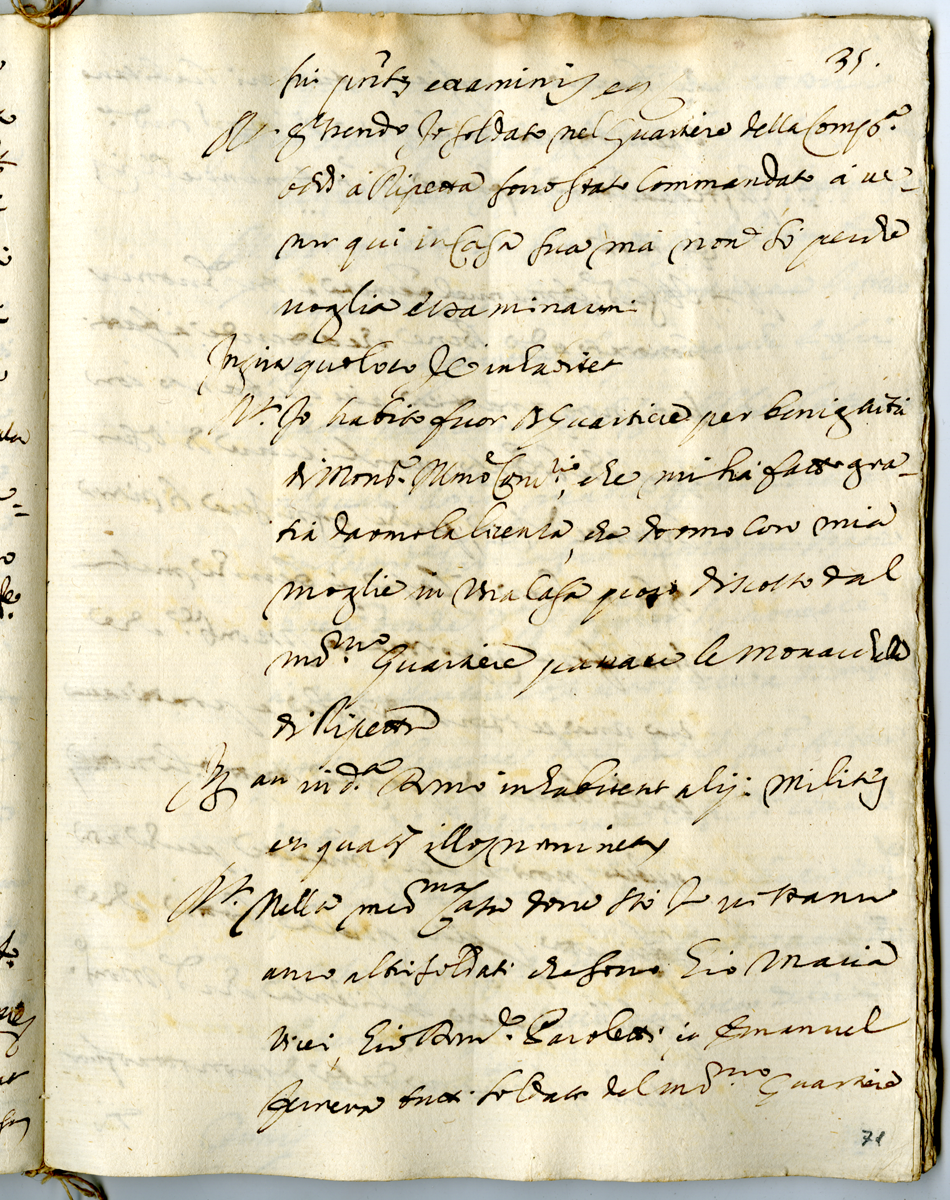 35.
sui pñtis examinis et
Rt. Essendo Io soldato nel Quartiere della Comp.a
di Ripetta sono stato Commandato à ue-
nir qui in Casa sua mà non sò perche
uoglia essaminarmi
Int.us quo loco Ipse inhabitet
Rt. Io habito fuor di Quartiere per benignità
di Mons.r Ill.mo Com.rio, che mi hà fatto gra-
tia darmi la licenza, che dormo con mia
moglie in una Casa poco discosto dal
med.mo Quartiere le Monache
di Ripetta
Int. an in d.a Domo inhabitent alij milites
et quat. illos nominet
Rt. Nella med.ma Casa doue stò Io ui stanno
anco altri soldati che sono Gio Maria
Vici, Gio And.a Paroletti, et Emanuel
tutti soldati del med.mo Quartiere
71